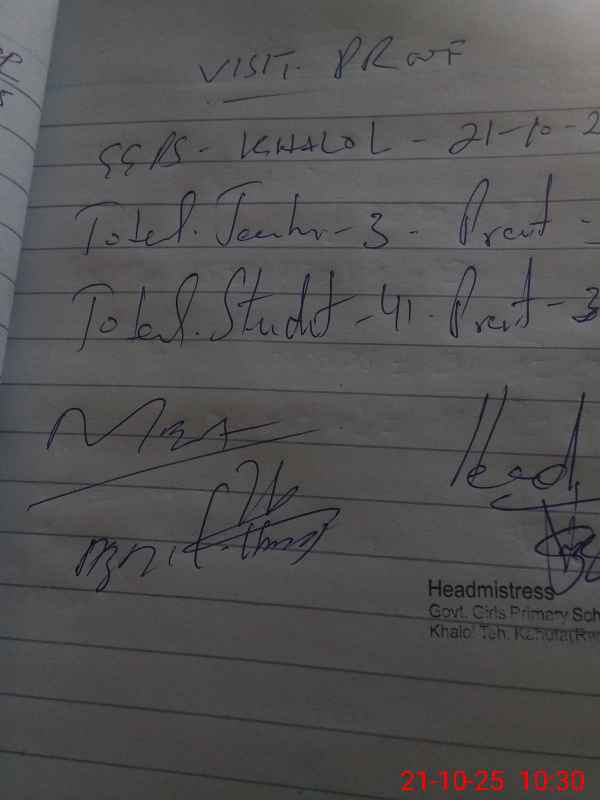 VISIT. PROOF
GGPS - KHALOL - 21-10-2
Total. Teacher - 3 - Presnt -
Total. Studet - 41. Presnt - 3
MEA
Head
Headmistress
Govt. Girls Primary Sch
Khalol Teh. Kahuta(Raw
21-10-25 10:30